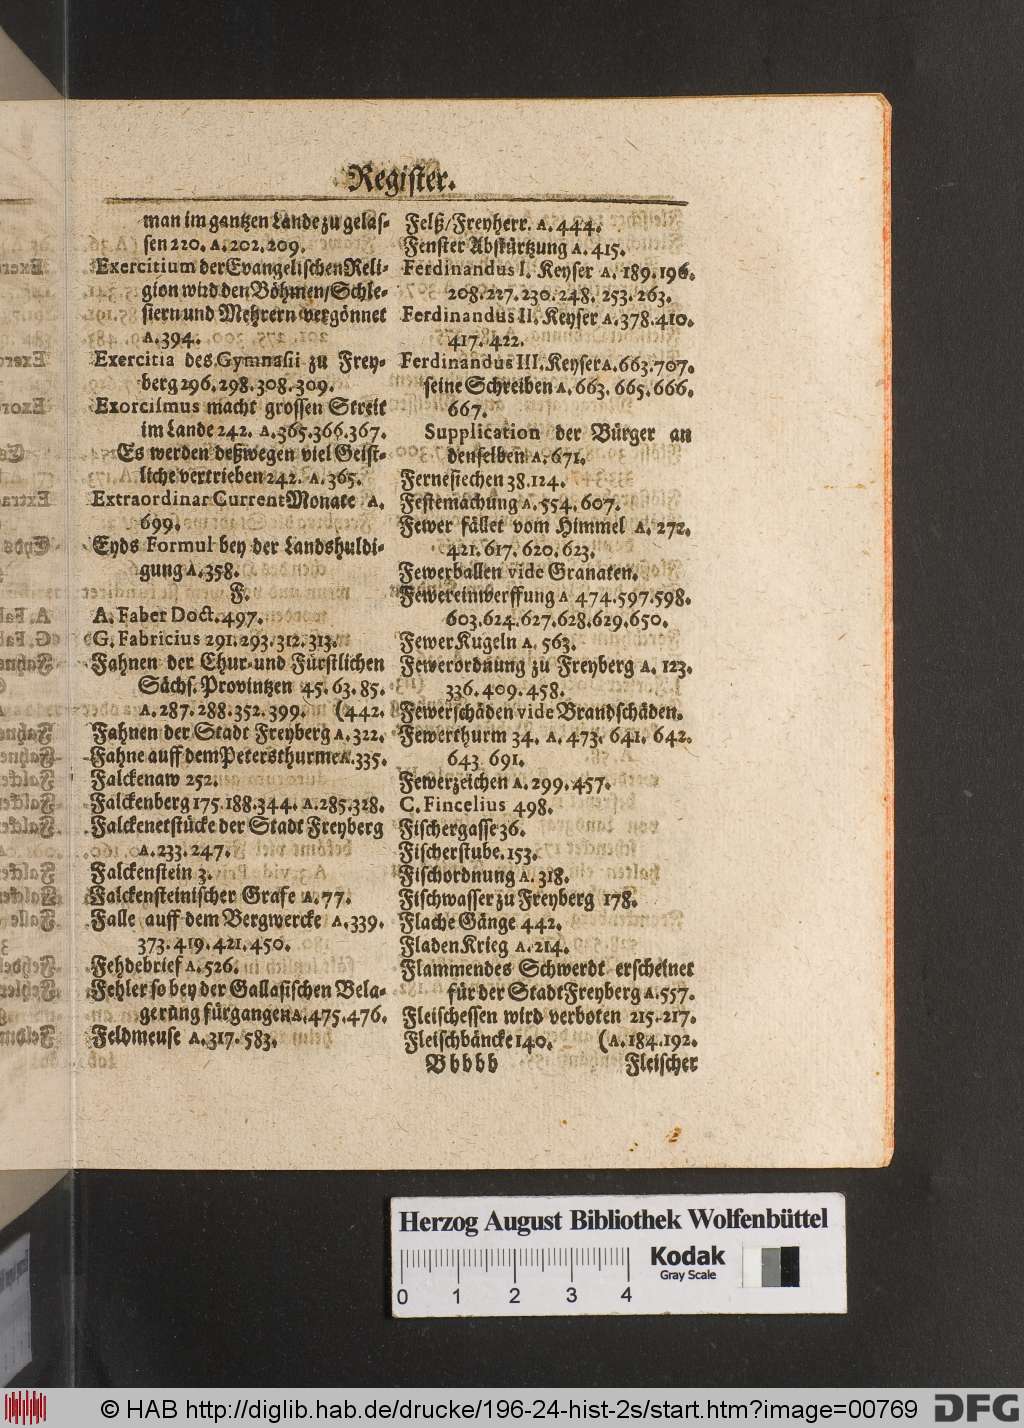 Register.
man im gantzen Lande zu gelas-
sen 220. A. 202. 209.
Exercitium der Evangelischen Reli-
gion wird den Böhmen/Schle-
siern und Mehrern vergönnet
A. 394.
Exercitia des Gymnasii zu Frey-
berg 296. 298. 308. 309.
Exorcismus macht grossen Streit
im Lande 242. A. 365. 366. 367.
Es werden deßwegen viel Geist-
liche vertrieben 242. A. 365.
Extraordinar Current Monate A.
699.
Eyds Formul bey der Landshuldi-
gung A. 358.
F.
A. Faber Doct. 497.
G. Fabricius 291. 293. 312. 313.
Fahnen der Chur- und Fürstlichen
Sächs. Provintzen 45. 63. 85.
A. 287. 288. 352. 399. (442.
Fahnen der Stadt Freyberg A. 322.
Fahne auff dem Petersthurme A. 335.
Falckenaw 252.
Falckenberg 175. 188. 344. A. 285. 328.
Falckenetstücke der Stadt Freyberg
A. 233. 247.
Falckenstein 3.
Falckensteinischer Grafe A. 77.
Falle auff dem Bergwercke A. 339.
373. 419. 421. 450.
Fehdebrief A. 526.
Fehler so bey der Gallasischen Bela-
gerung fürgangen A. 475. 476.
Feldmeuse A. 317. 583.
Felß/Freyherr. A. 444.
Fenster Abstürtzung A. 415.
Ferdinandus I. Keyser A. 189. 196.
208. 227. 230. 248. 253. 263.
Ferdinandus II. Keyser A. 378. 410.
417. 422.
Ferdinandus III. Keyser A. 663. 707.
seine Schreiben A. 663. 665. 666.
667.
Supplication der Bürger an
denselben A. 671.
Fernestechen 38. 124.
Festemachung A. 554. 607.
Fewer fället vom Himmel A. 272.
421. 617. 620. 623.
Fewerballen vide Granaten.
Fewereinwerffung A 474. 597. 598.
603. 624. 627. 628. 629. 650.
Fewer Kugeln A. 563.
Fewerordnung zu Freyberg A. 123.
336. 409. 458.
Fewerschäden vide Brandschäden.
Fewerthurm 34. A. 473. 641. 642.
643 691.
Fewerzeichen A. 299. 457.
C. Fincelius 498.
Fischergasse 36.
Fischerstube. 153.
Fischordnung A. 318.
Fischwasser zu Freyberg 178.
Flache Gänge 442.
Fladen Krieg A. 214.
Flammendes Schwerdt erscheinet
für der Stadt Freyberg A. 557.
Fleischessen wird verboten 215. 217.
Fleischbäncke 140. (A. 184. 192.
Bbbbb Fleischer
Herzog August Bibliothek Wolfenbüttel
Kodak
Gray Scale
0 1 2 3 4
© HAB http://diglib.hab.de/drucke/196-24-hist-2s/start.htm?image=00769
DFG